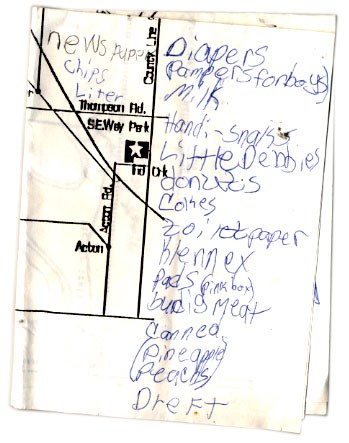 news pape
Chips
Liter
County Line
Thompson Rd.
S.E.Way Park
Acton Rd.
Acton
Diapers
(Pampers for boys)
Milk
Handi-snacks
Little Debbies
donuts
Cokes
toiret paper
klennex
Pads (pink box)
burdig meat
Canned
(pineapple
Peachs)
Dreft